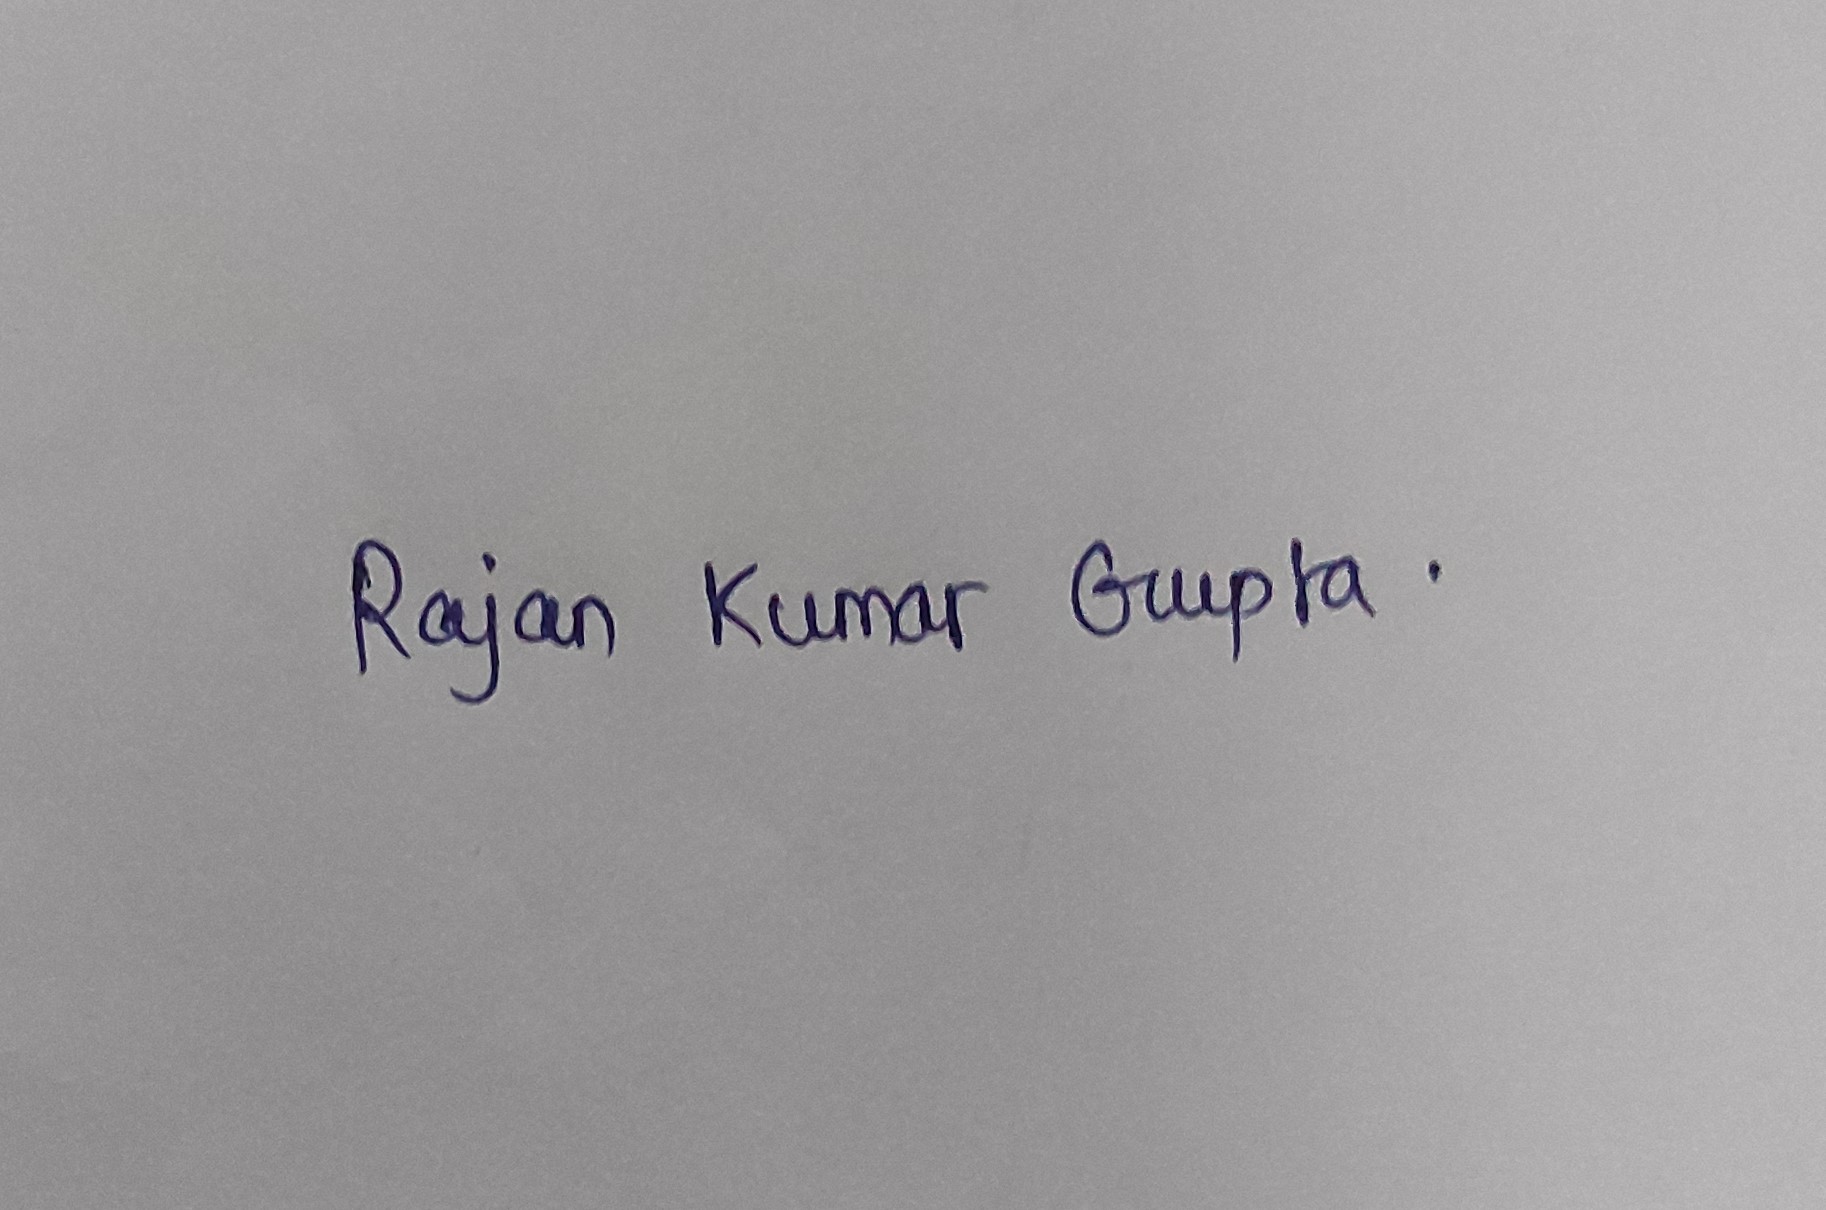 Rajan Kumar Gupta.